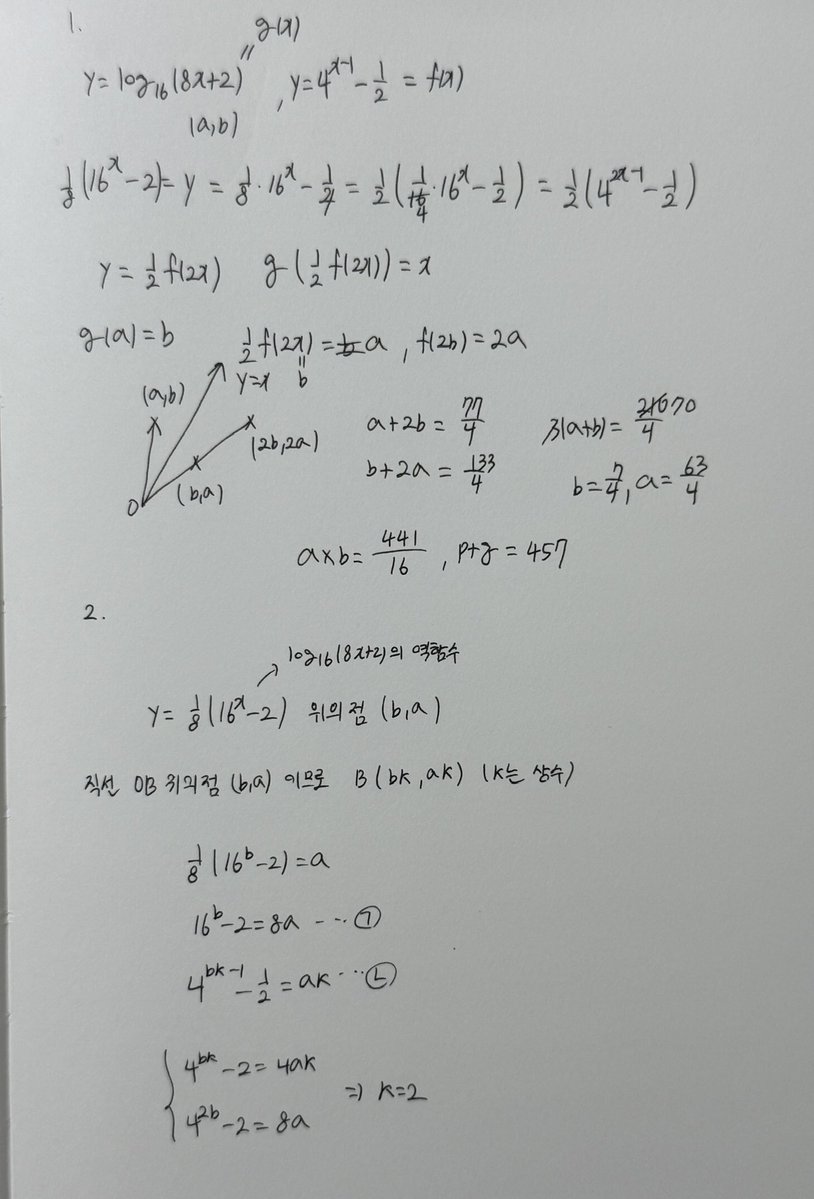 1.
g(x)
y=log₁₆(8x+2) , y=4^(x-1) - 1/2 = f(x)
(a,b)
1/8(16^x-2)= y = 1/8·16^x - 1/4 = 1/2(1/4·16^x - 1/2) = 1/2(4^(2x-1) - 1/2)
y = 1/2 f(2x) g(1/2 f(2x)) = x
g(a)=b 1/2 f(2x) = a , f(2b)=2a
y=x b
(a,b)
a+2b = 77/4 3(a+b) = 210/4 70
(2b,2a)
b+2a = 133/4 b=7/4, a=63/4
(b,a)
O
a×b = 441/16 , p+q = 457
2.
log₁₆(8x+2)의 역함수
y= 1/8(16^x-2) 위의점 (b,a)
직선 OB 위의점 (b,a) 이므로 B(bk, ak) (k는 상수)
1/8(16^b-2)=a
16^b-2=8a ---㉠
4^(bk-1) - 1/2 = ak ---㉡
4^(bk) -2 = 4ak
⇒ k=2
4^(2b) -2 = 8a